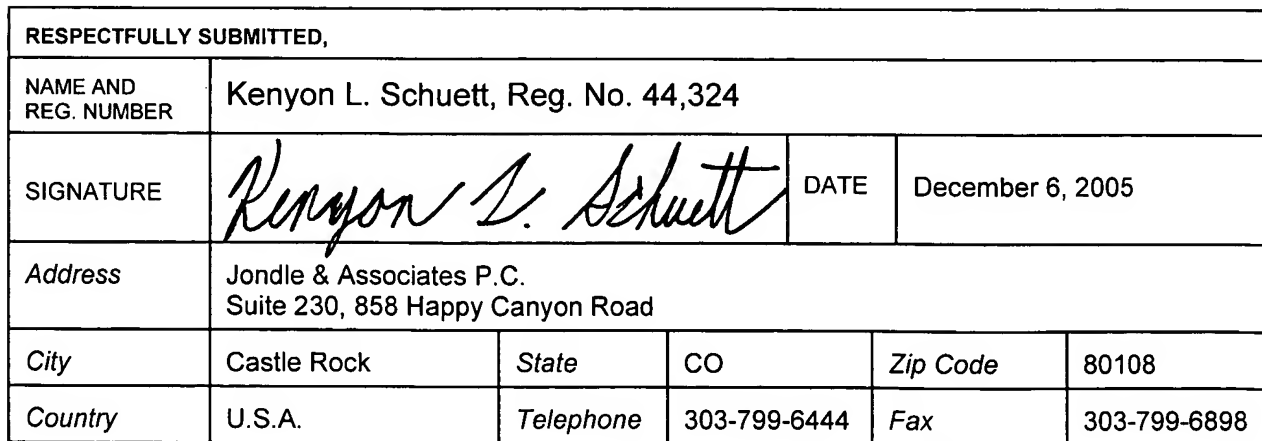 RESPECTFULLY SUBMITTED,
NAME AND
REG. NUMBER
Kenyon L. Schuett, Reg. No. 44,324
SIGNATURE Kenyon L. Schuett DATE December 6, 2005
Address
Jondle & Associates P.C.
Suite 230, 858 Happy Canyon Road
City Castle Rock State CO Zip Code 80108
Country U.S.A. Telephone 303-799-6444 Fax 303-799-6898